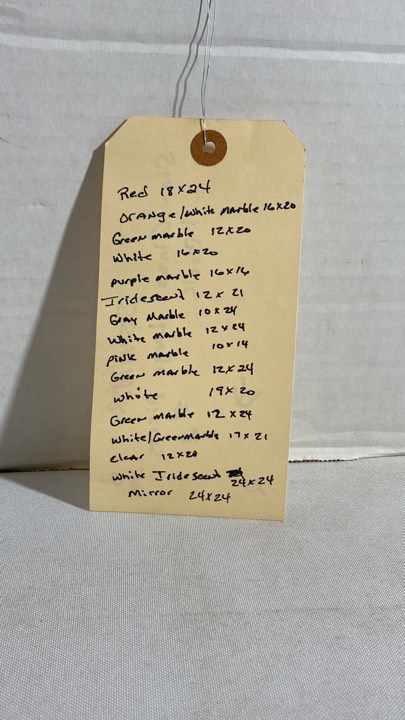 Red 18x24
Orange/White Marble 16x20
Green marble 12x20
White 16x20
purple marble 16x16
Iridescent 12x21
Gray Marble 10x24
White marble 12x24
pink marble 10x14
Green marble 12x24
white 19x20
Green Marble 12x24
White/Green marble 17x21
clear 12x20
White Iridescent 24x24
Mirror 24x24